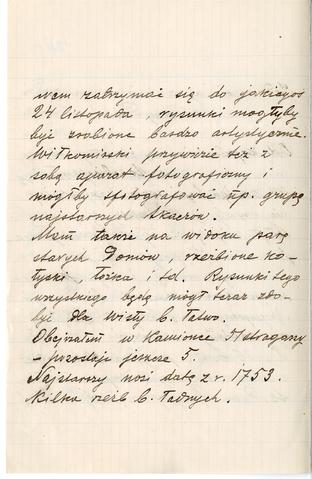 wam zatrzymać się do jakiegoś
24 listopada, rysunki mogłyby
być zrobione bardzo artystycznie.
Witkomirski przywiezie też z
sobą aparat fotograficzny i
mógłby sfotografować np. grupę
najstarszych tkaczów.
Mam także na widoku parę
starych Domów, rzeźbione ko-
łyski, łóżka, itd. Rysunki tego
wszystkiego będę mógł teraz zdo-
być dla Wisły b. łatwo.
Obejrzałem w Kamionce
– pozostaje jeszcze 5.
Najstarszy nosi datę z r. 1753.
Kilka rzeźb b. ładnych.